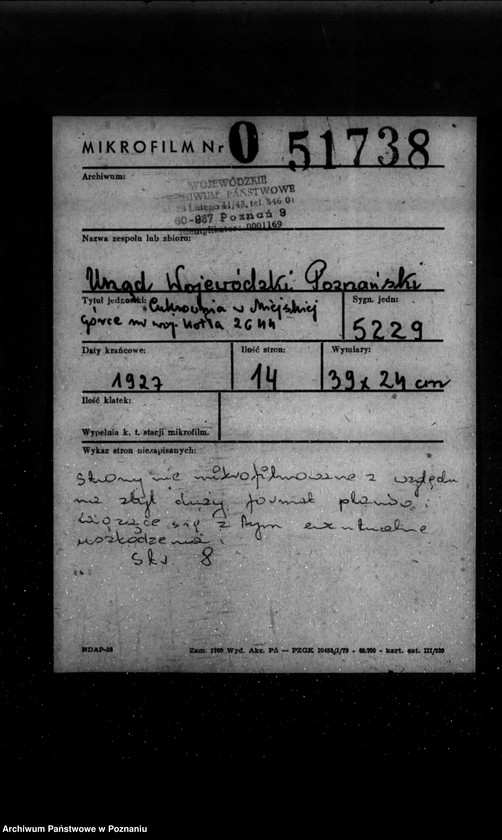 MIKROFILM Nr 0 51738
Archiwum:
WOJEWÓDZKIE
ARCHIWUM PAŃSTWOWE
Lutego 41/43, tel. 546 01
60-967 Poznań 9
Identyfikator: 0001169
Nazwa zespołu lub zbioru:
Urząd Wojewódzki Poznański
Tytuł jednostki: Cukrownia w Miejskiej
Górce nr woj. kotła 2644
Sygn. jedn:
5229
Daty krańcowe:
1927
Ilość stron:
14
Wymiary:
39 x 24 cm
Ilość klatek:
Wypełnia k. t. stacji mikrofilm.
Wykaz stron niezapisanych:
Strony nie mikrofilmowane z względu
na zbyt duży format planów i
wiążące się z tym ewentualne
uszkodzenia.
Str. 8
NDAP-16
Zam. Wyd. Akc. PA — PZGK
kart. sat. III/220
Archiwum Państwowe w Poznaniu